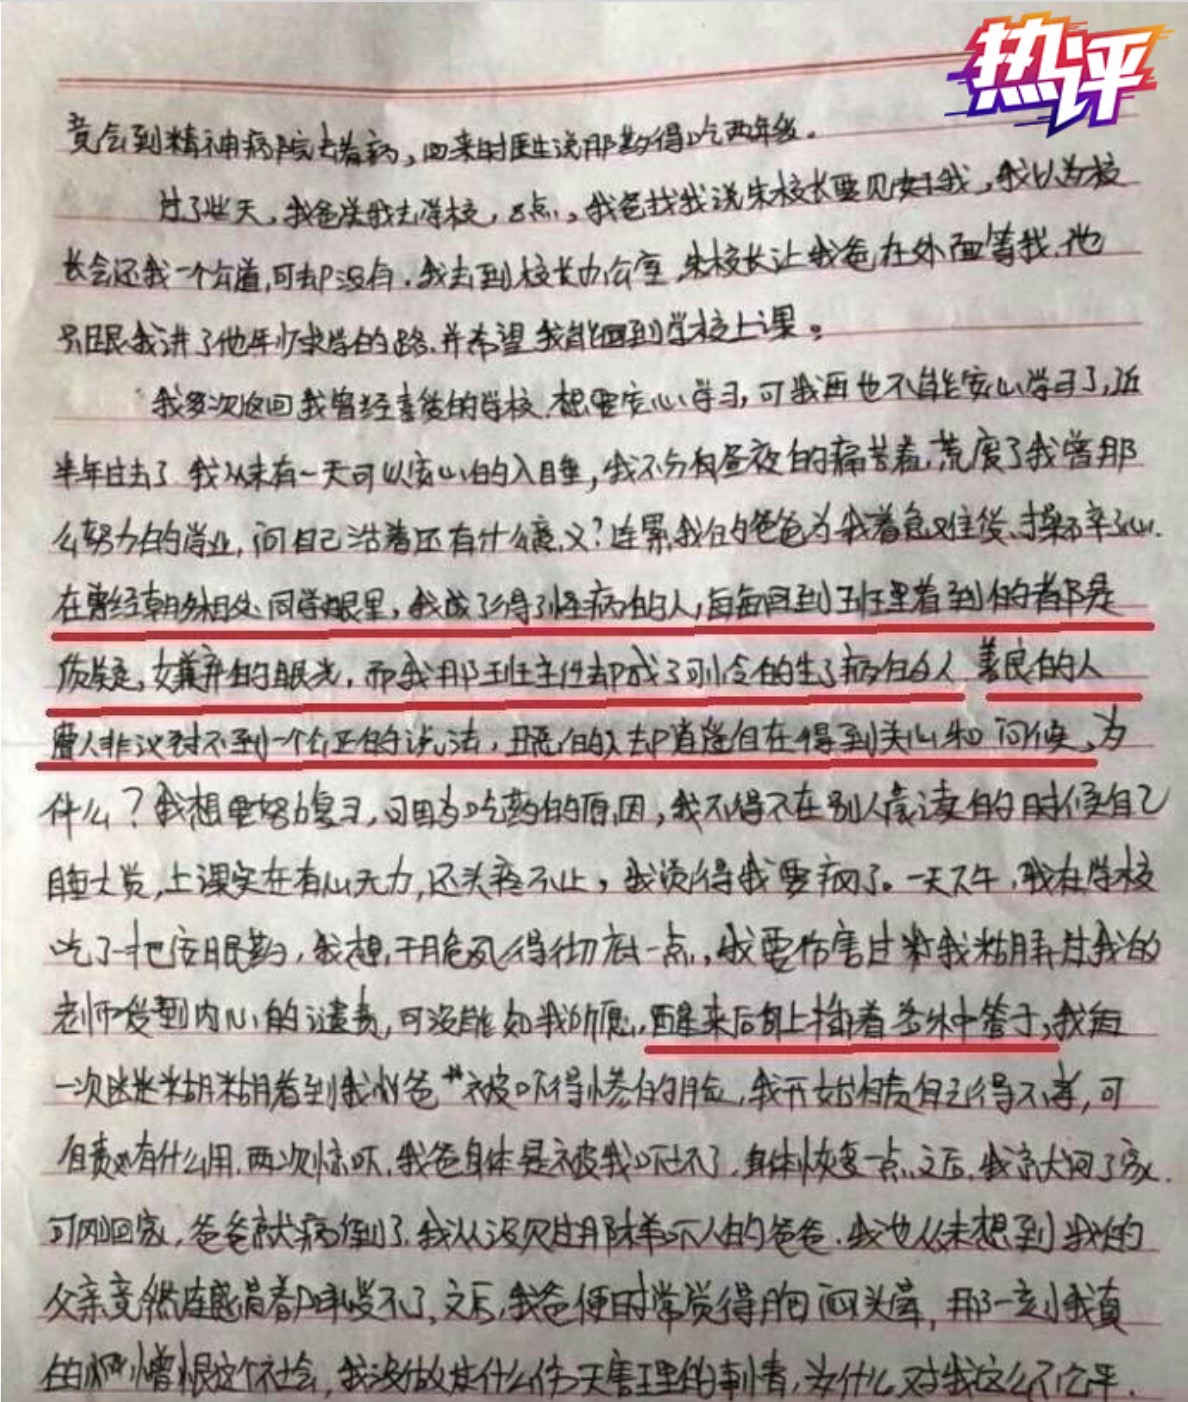 热评
竟会到精神病院去看病，回来时医生说那药得吃两年级。
过了些天，我爸送我去学校，8点，我爸找我说朱校长要见我，我以为校
长会还我一个公道，可却没有。我去到校长办公室，朱校长让我爸在外面等我，他
只跟我讲了他年少求学的路，并希望我能回到学校上课。
我多次返回我曾经喜爱的学校，想要安心学习，可我再也不能安心学习了，近
半年过去了，我从未有一天可以安心的入睡，我不分白昼夜的痛苦着，荒废了我曾那
么努力的学业，问自己活着还有什么意义？连累我的爸爸为我着急
在曾经朝夕相处同学眼里，我成了得了怪病的人，每每回到班里看到的都是
质疑，嫌弃的眼光，而我那班主任却成了可怜的生了病的人 善良的人
遭人非议得不到一个公正的说法，丑恶的人却逍遥自在得到关心和问候，为
什么？我想要努力复习，可因为吃药的原因，我不得不在别人背读的时候自己
睡大觉，上课实在有心无力，还头疼不止，我觉得我要疯了。一天下午，我在学校
吃了一把安眠药，我想，干脆死得彻底一点，我要伤害过我糊弄过我的
老师受到内心的谴责，可没能如我所愿，醒来后身上插着各种管子，我每
一次迷迷糊糊看到我爸被吓得惨白的脸，我开始自责自己得不孝，可
自责又有什么用，两次惊吓，我爸身体是被我吓坏了，身体恢复一点之后，我亲大回了家，
可刚回家，爸爸就病倒了，我从没见过那样吓人的爸爸，我也从未想到我的
父亲竟然连感冒都承受不了，之后，我爸便时常觉得胸闷头晕，那一刻我真
的憎恨这个社会，我没做过什么伤天害理的事情，为什么对我这么不公平，